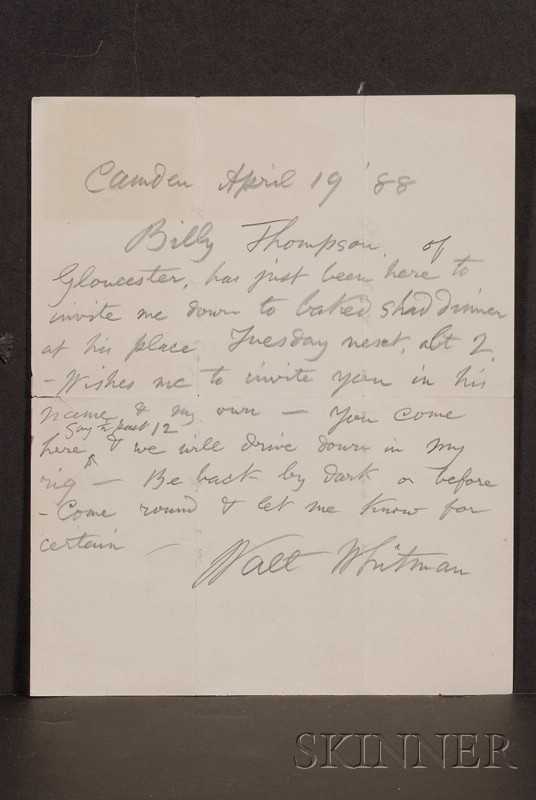 Camden April 19 '88
Billy Thompson, of
Gloucester, has just been here to
invite me down to baked shad dinner
at his place Tuesday next, abt 2
- Wishes me to invite you in his
name & my own - You come
say ½ past 12
here & we will drive down in my
rig - Be back by dark or before
- Come round & let me know for
certain -
Walt Whitman
SKINNER